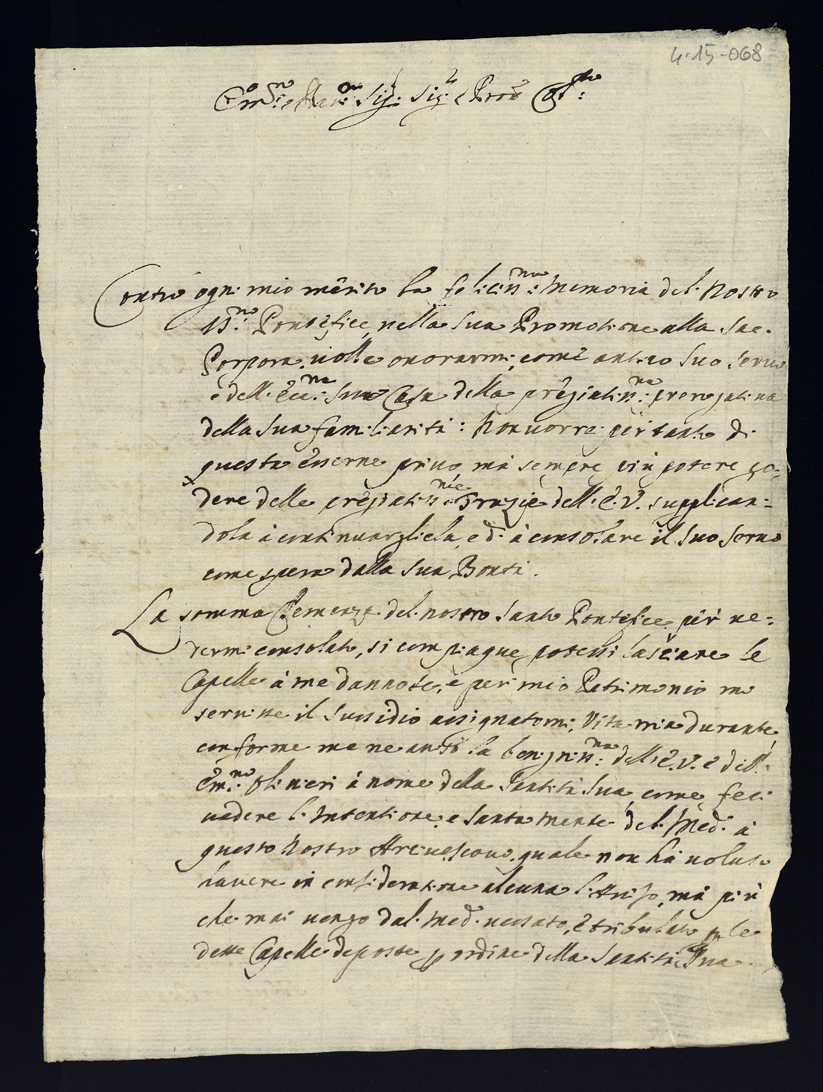 4-15-068
Em.mo e Rev.mo Sig.r Sig.r e Pron
Contro ogni mio merito la felicis.ma Memoria del Nostro
Pontefice, nella Sua Promotione alla Sac.
Porpora, volle onorarmi, come antico Suo Servo
e dell' Ecc.ma Sua Casa della pregiatis.ma prerogativa
della Sua familiarità: Non vorrei pertanto di
questa esserne privo, mà sempre più potere go-
dere delle pregiatis.me Grazie dell' E. V. supplican-
dola à continuargliela, e di à consolare il Suo Servo
come spera dalla Sua Bontà.
La somma Clemenza del nostro Santo Pontefice per ve-
dermi consolato, si compiaque potessi lasciare le
Capelle à me dannose, e per mio Patrimonio mi
servisse il Sussidio assignatomi, Vita mia durante,
conforme me ne la benignis.ma dell' E. V. e dell'
Em.mo Olivieri à nome della Santità Sua come feci
vedere l' Intentione e Santa mente del Med. à
questo Nostro Arcivescovo, quale non hà voluto
havere in consideratione alcuna l' , mà più
che mai vengo dal Med. vessato, e tribulato p le
dette Capelle deposte p ordine della Santità Sua